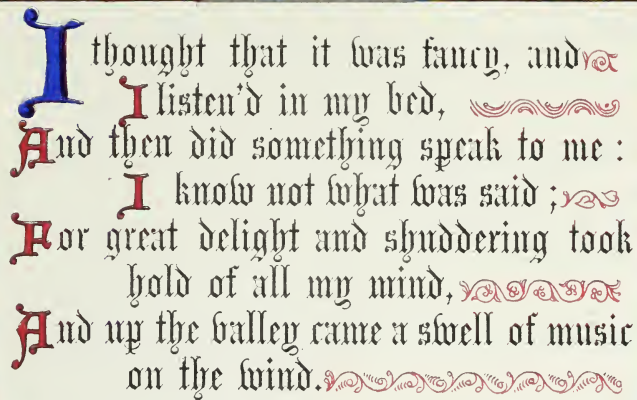 I thought that it was fancy, and
I listen'd in my bed,
And then did something speak to me :
I know not what was said ;
For great delight and shuddering took
hold of all my mind,
And up the valley came a swell of music
on the wind.